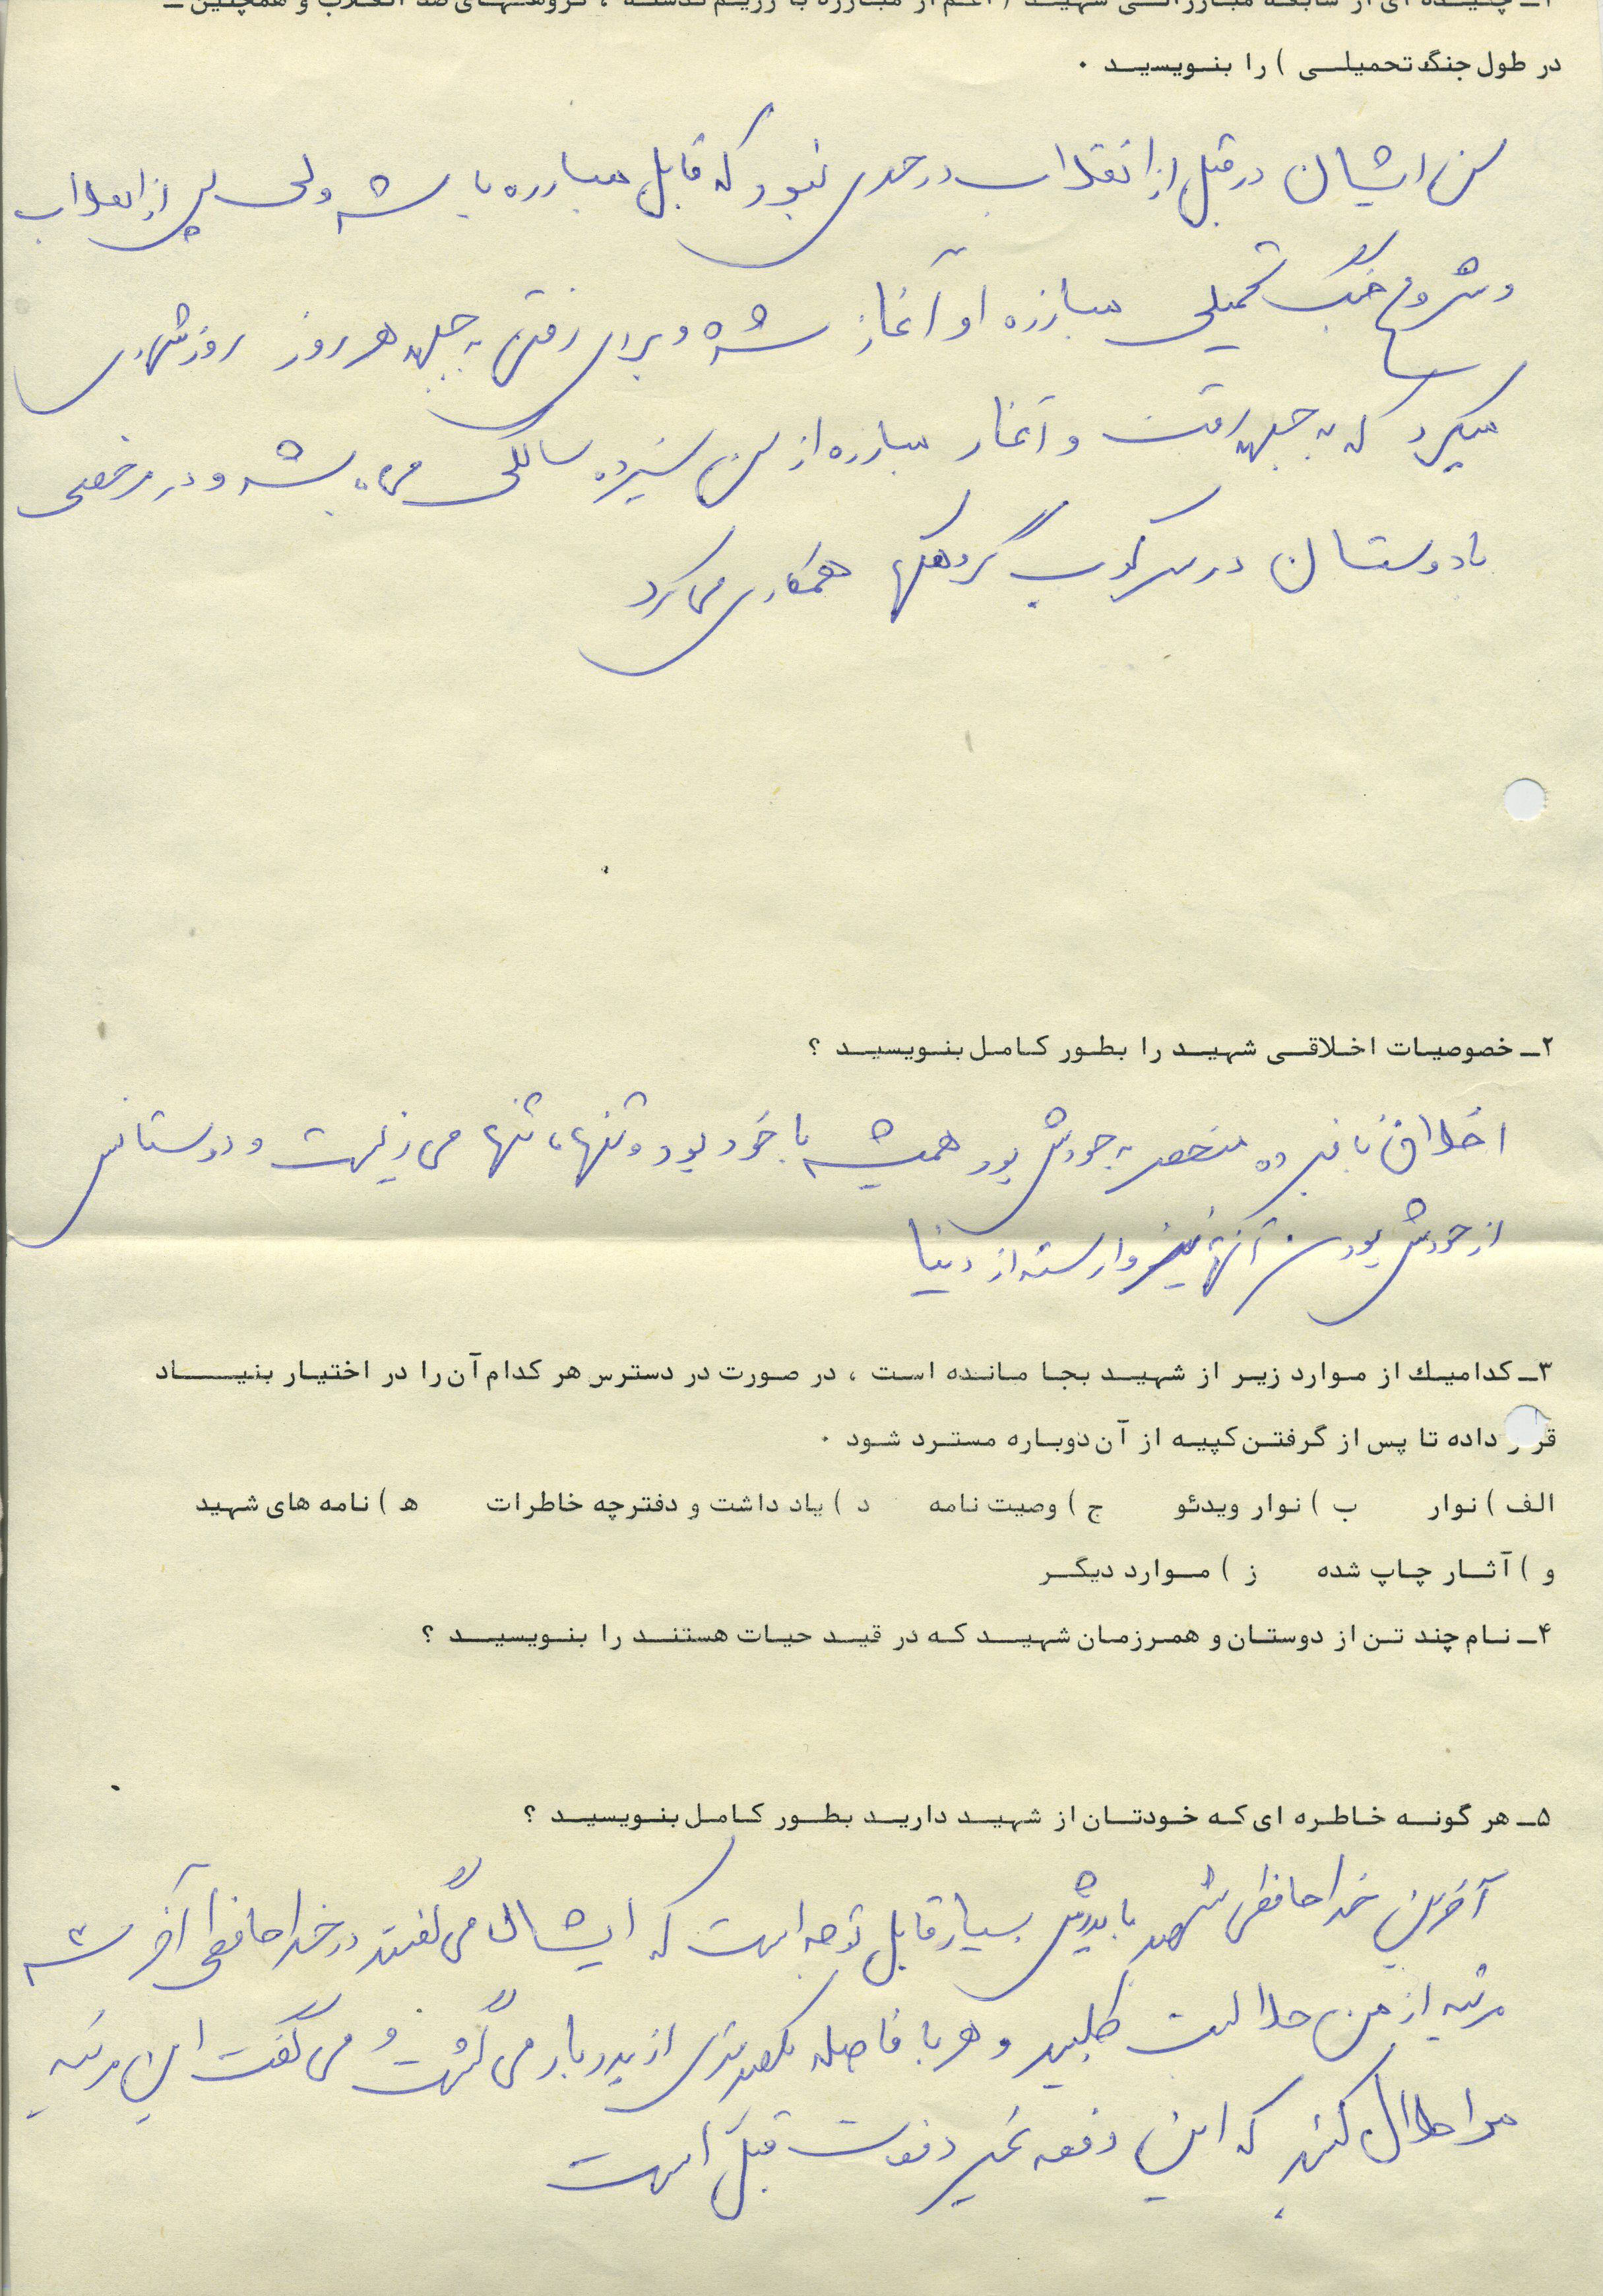 ۱ـ چکیـده ای از سابقـه مبـارزاتـی شهیـد ( اعـم از مبـارزه با رژیـم گذشتـه ، گروهکـهـای ضد انقـلاب و همچنین ـ
در طول جنگ تحمیلـی ) را بنـویسیـد .
سن ایشان در قبل از انقلاب در حدی نبود که قابل مبارزه باشد ولی پس از انقلاب
و شروع جنگ تحمیلی مبارزه او آغاز شد و برای رفتن به جبهه هر روز روزشماری
میکرد که به جبهه رفت و آغاز مبارزه از سن سیزده سالگی می باشد و در مرخصی
با دوستان در سرکوب گروهکها همکاری می کرد
۲ـ خصوصیـات اخـلاقـی شهیـد را بطـور کـامـل بنـویسیـد ؟
اخلاق نامبرده منحصر به خودش بود همیشه با خود بود و تنهای تنها می زیست و دوستانش
از خودش بودند آنها نیز وارسته از دنیا
۳ـ کدامیـك از مـوارد زیـر از شهیـد بجـا مـانـده اسـت ، در صـورت در دسترس هر کدام آن را در اختیـار بنیـاد
قرار داده تا پس از گرفتـن کپیـه از آن دوبـاره مستـرد شـود .
الف ) نوار ب ) نـوار ویدئو ج ) وصیت نامه د ) یاد داشت و دفترچه خاطرات ه ) نامه های شهید
و ) آثـار چـاپ شده ز ) مـوارد دیگـر
۴ـ نـام چند تـن از دوستـان و همـرزمـان شهیـد کـه در قیـد حیـات هستنـد را بنـویسیـد ؟
۵ـ هر گونـه خـاطـره ای کـه خـودتـان از شهیـد داریـد بطـور کـامـل بنـویسیـد ؟
آخرین خداحافظی شهید با پدرش بسیار قابل توجه است که ایشان می گفتند در خداحافظی آخر سه
مرتبه از من حلالیت طلبید و هر با فاصله یکصد متری از پدر باز می گشت و می گفت این مرتبه
مرا حلال کنید که این دفعه غیر دفعات قبل است